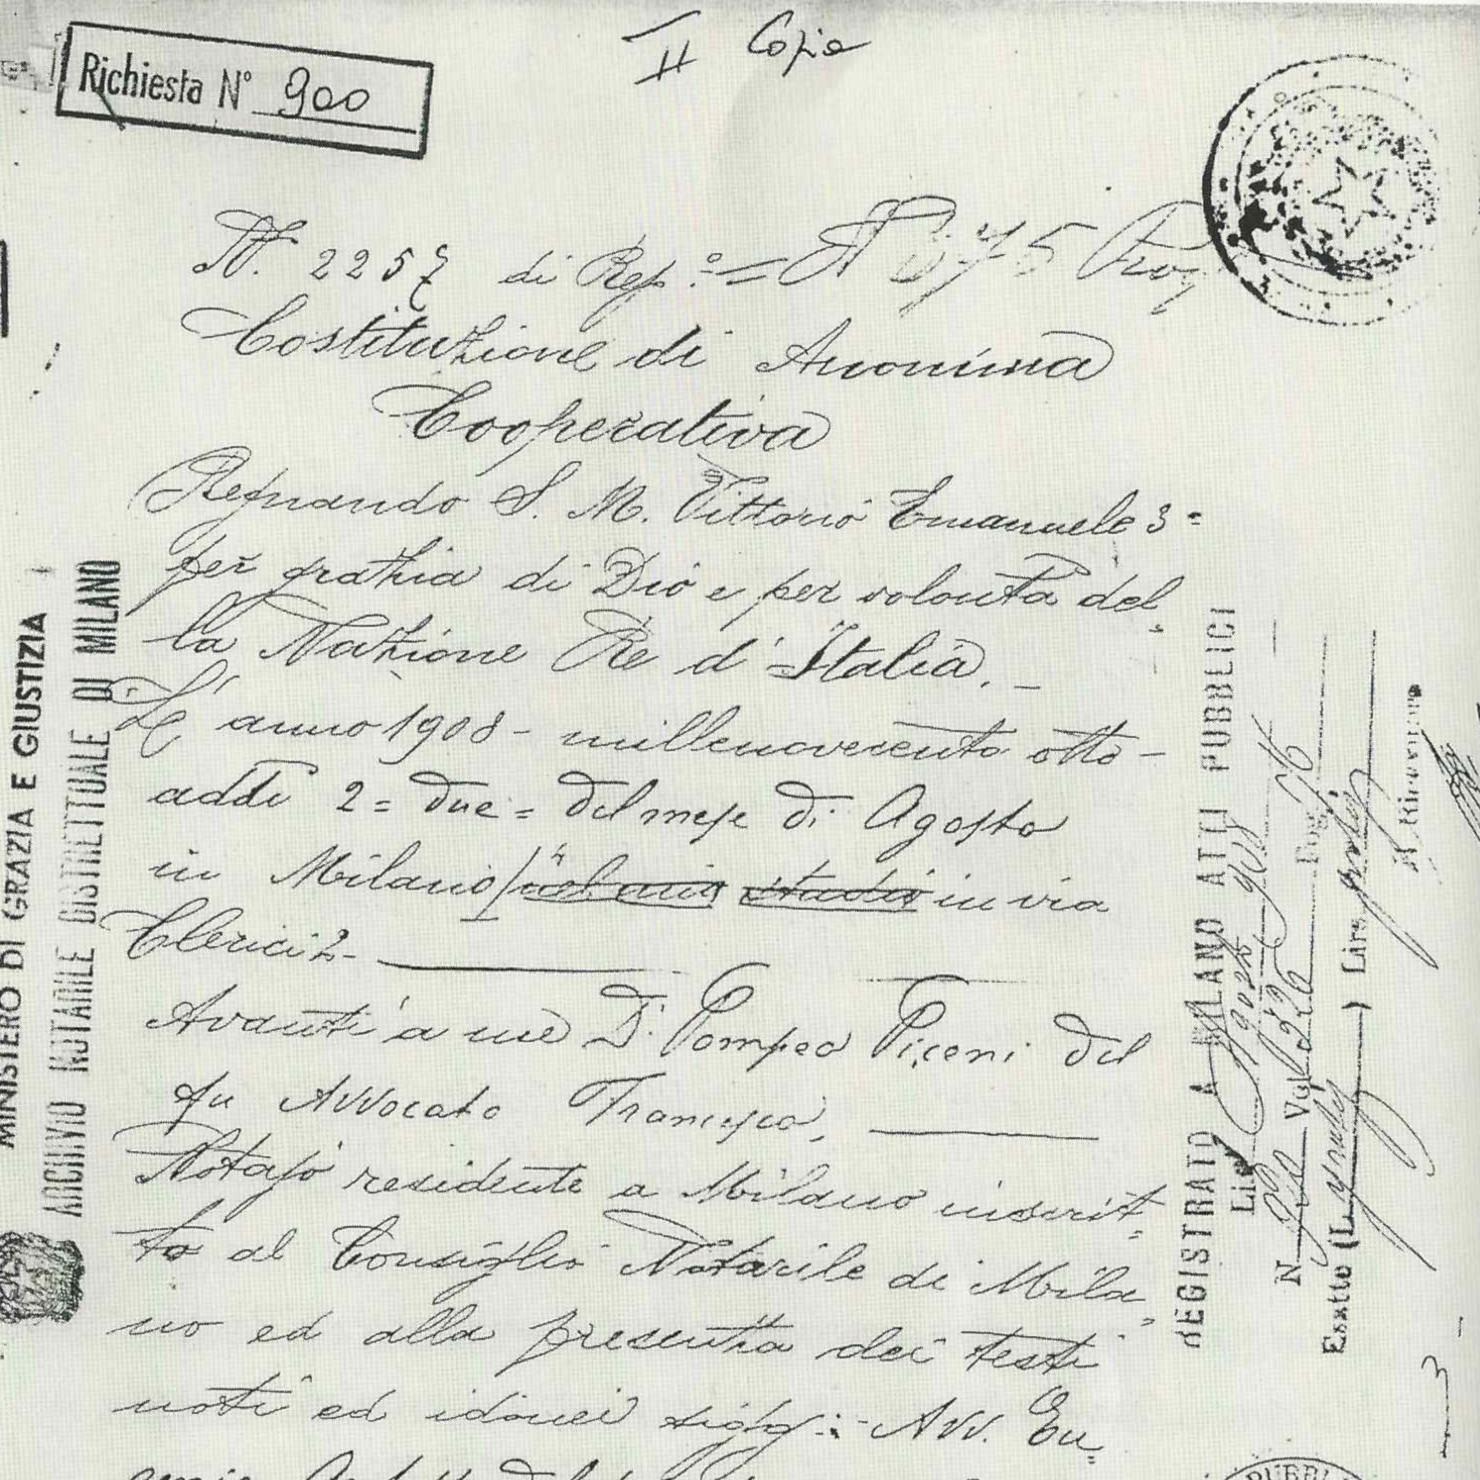 II Copia
Richiesta N° 900
N. 2257 di Rep.° = N 675 Prog
Costituzione di Anonima
Cooperativa
Regnando S. M. Vittorio Emanuele 3°
per grazia di Dio e per volontà del
la Nazione Re d'Italia. -
L'anno 1908 - millenovecento otto -
addì 2 = due = del mese di Agosto
in Milano nel mio studio in via
Clerici 2 -
Avanti a me Dr. Pompeo Piceni del
fu Avvocato Francesco,
Notajo residente a Milano inscrit-
to al Consiglio Notarile di Mila
no ed alla presenza dei testi
noti ed idonei sigg.: Avv. Eu
MINISTERO DI GRAZIA E GIUSTIZIA
ARCHIVIO NOTARILE DISTRETTUALE DI MILANO
REGISTRATO A MILANO ATTI PUBBLICI
Li 908
N Vol 226 Fog
Esatto Lire
Il Ricevitore
3